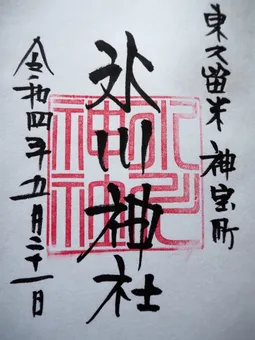 東久留米 神宝町
氷川神社
令和四年九月二十一日
氷川
神社